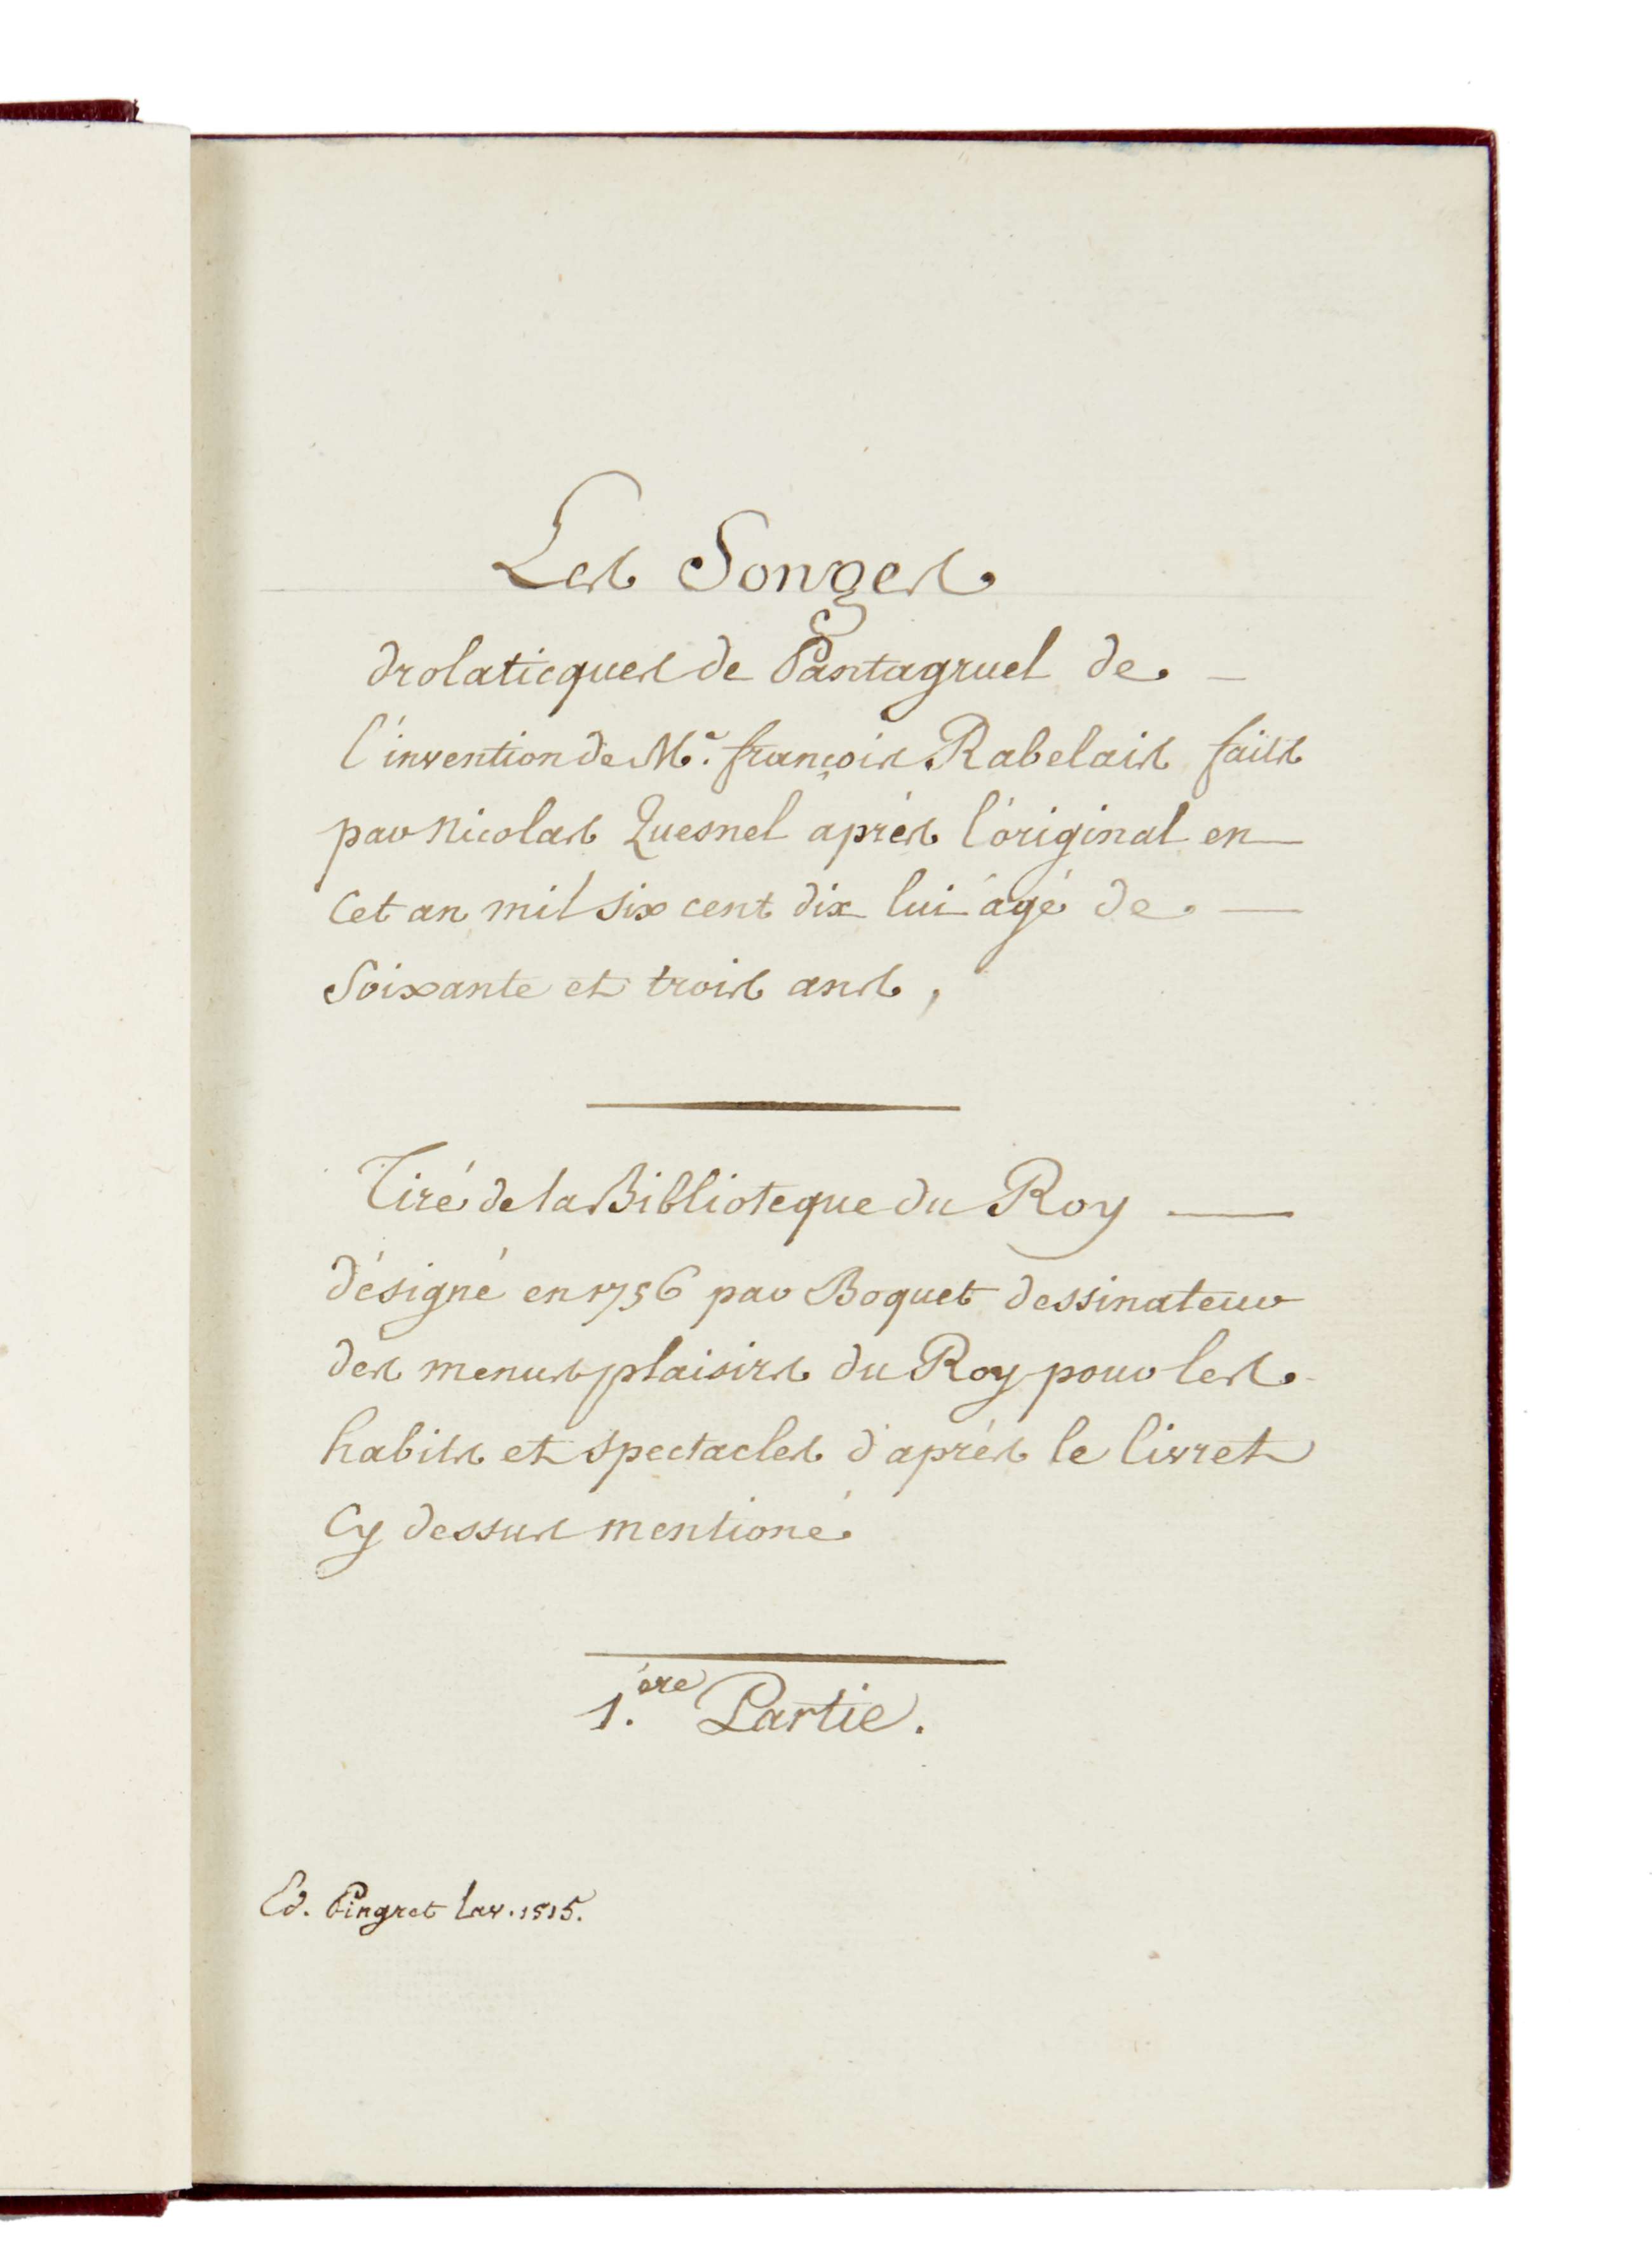 Les Songes
drolaticques de Pantagruel de
l'invention de Me. françois Rabelais faits
par Nicolas Quesnel aprés l'original en
Cet an mil six cent dix lui âgé de
Soixante et trois ans,
Tiré de la Biblioteque du Roy
désigné en 1756 par Boquet dessinateur
des menus plaisirs du Roy pour les
habits et spectacles d'aprés le livret
Cy dessus mentioné
1.ére Partie.
Ed. Pingret lav. 1815.